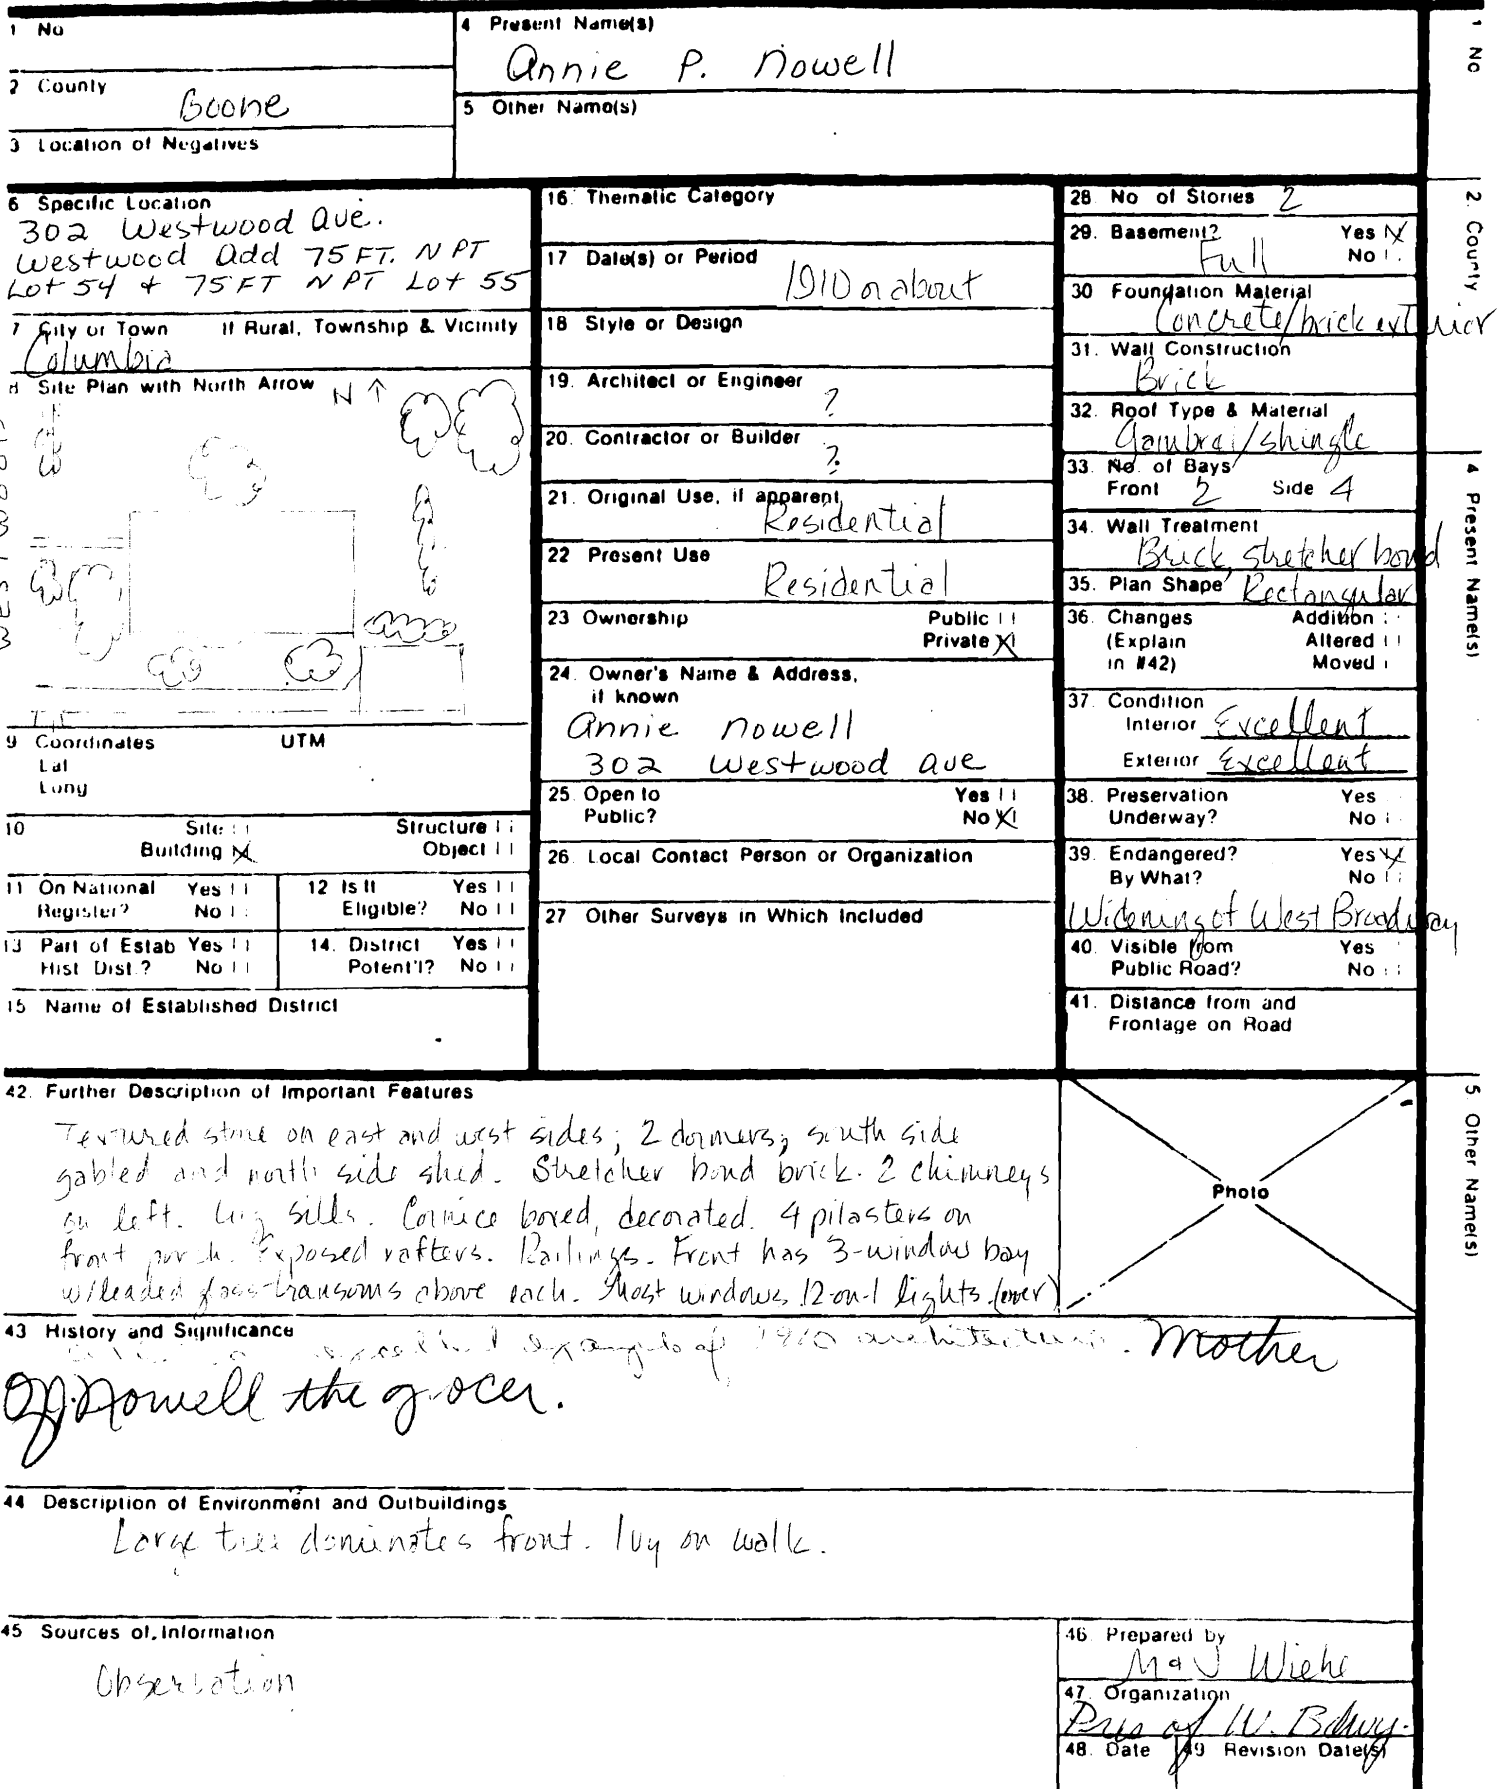 1 No
4 Present Name(s)
Annie P. Nowell
2 County
Boone
5 Other Name(s)
3 Location of Negatives
6 Specific Location
302 Westwood Ave.
Westwood Add 75 FT. N PT
Lot 54 + 75 FT N PT Lot 55
7 City or Town If Rural, Township & Vicinity
Columbia
8 Site Plan with North Arrow
N
9 Coordinates UTM
Lat
Long
10 Site
Structure
Building X
Object
11 On National Register? Yes No
12 Is It Eligible? Yes No
13 Part of Estab Hist Dist.? Yes No
14. District Potent'l? Yes No
15 Name of Established District
16. Thematic Category
17 Date(s) or Period
1910 or about
18 Style or Design
19. Architect or Engineer
?
20. Contractor or Builder
?
21. Original Use, if apparent
Residential
22 Present Use
Residential
23 Ownership Public
Private X
24. Owner's Name & Address,
if known
Annie Nowell
302 Westwood Ave
25. Open to Yes
Public? No X
26. Local Contact Person or Organization
27 Other Surveys in Which Included
28 No of Stories 2
29. Basement? Yes X
Full No
30 Foundation Material
Concrete/brick exterior
31. Wall Construction
Brick
32. Roof Type & Material
Gambrel/shingle
33. No. of Bays
Front 2 Side 4
34. Wall Treatment
Brick, stretcher bond
35. Plan Shape Rectangular
36. Changes Addition
(Explain Altered
in #42) Moved
37. Condition
Interior Excellent
Exterior Excellent
38. Preservation Yes
Underway? No
39. Endangered? Yes X
By What? No
Widening of West Broadway
40. Visible from Yes
Public Road? No
41. Distance from and
Frontage on Road
42. Further Description of Important Features
Textured stone on east and west sides; 2 dormers; south side
gabled and north side shed. Stretcher bond brick. 2 chimneys
on left. Lug sills. Cornice boxed, decorated. 4 pilasters on
front porch. Exposed rafters. Railings. Front has 3-window bay
w/leaded glass transoms above each. Most windows 12-on-1 lights. (over)
Photo
43 History and Significance
excellent example of 1910 architecture. Mother
Of Nowell the grocer.
44 Description of Environment and Outbuildings
Large tree dominates front. Ivy on walk.
45 Sources of Information
Observation
46. Prepared by
M & J Wiehe
47. Organization
Pres of W. Bdwy.
48. Date 49 Revision Date(s)
1 No
2. County
4 Present Name(s)
5 Other Name(s)